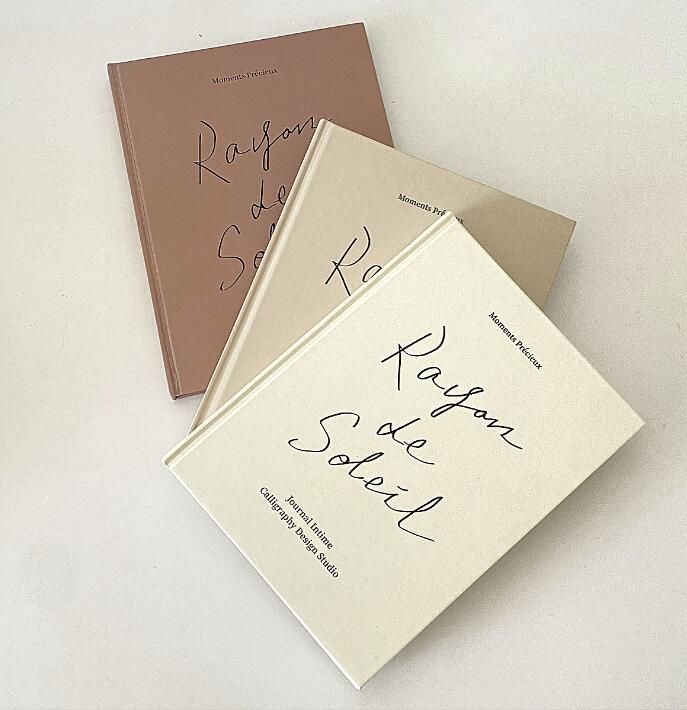 Moments Précieux
Rayon
de
So
Moments Précieux
Ra
Moments Précieux
Rayon
de
Soleil
Journal Intime
Calligraphy Design Studio